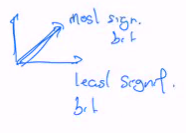 most sign.
bit
least signif.
bit